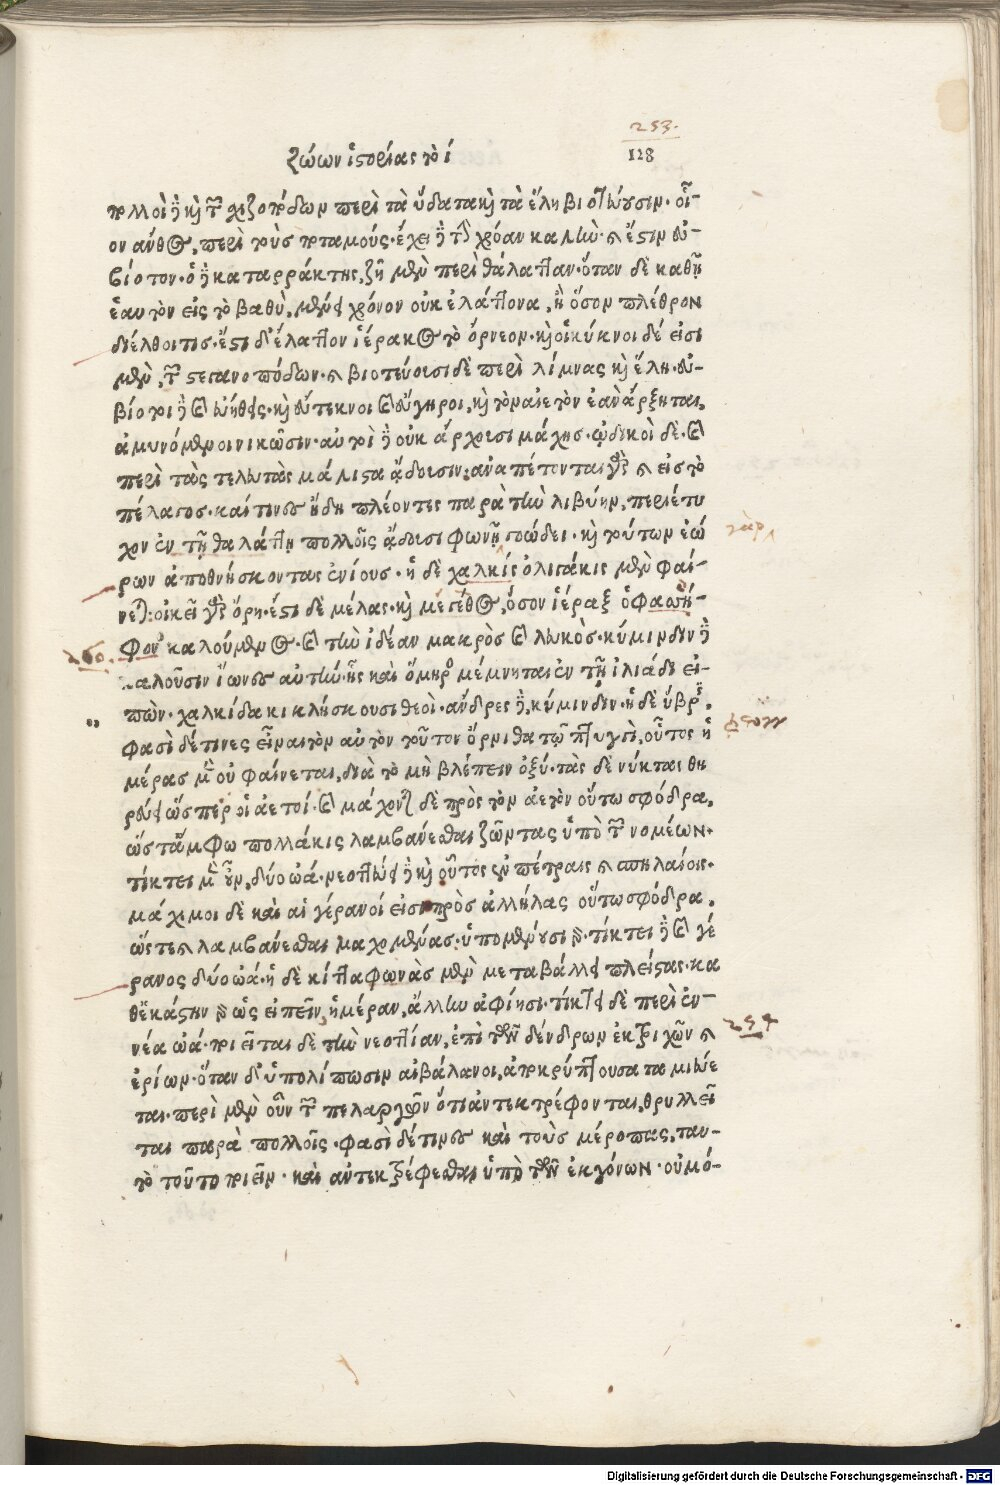 253.
ζώων ἱστορίας τὸ ί
128
ταμοὶ δὲ καὶ τῶν σχιζοπόδων περὶ τὰ ὕδατα καὶ τὰ ἕλη βιοτεύουσιν· οἷ-
ον ἄνθος, περὶ τοὺς ποταμούς· ἔχει δὲ τὴν χρόαν καλὴν· καὶ ἔστιν εὐ-
βίοτον· ὁ δὲ καταρράκτης, ζῇ μὲν περὶ θάλατταν· ὅταν δὲ καθῇ
ἑαυτὸν εἰς τὸ βαθὺ, μένει χρόνον οὐκ ἐλάττονα, ἢ ὅσον πλέθρον
διέλθοι τις· ἔστι δ' ἔλαττον ἱέρακος τὸ ὄρνεον· καὶ οἱ κύκνοι δέ εἰσι
μὲν, τῶν στεγανοπόδων· καὶ βιοτεύουσι δὲ περὶ λίμνας καὶ ἕλη· εὐ-
βίοτοι δὲ καὶ εὐήθεις· καὶ εὔτεκνοι καὶ εὔγηροι, καὶ τὸν αἰετὸν ἐὰν ἄρξηται,
ἀμυνόμενοι νικῶσιν· αὐτοὶ δὲ οὐκ ἄρχουσι μάχης· ᾠδικοὶ δὲ· καὶ
περὶ τὰς τελευτὰς μάλιστα ᾄδουσιν: ἀναπέτονται γὰρ καὶ εἰς τὸ
πέλαγος· καί τινες ἤδη πλέοντες παρὰ τὴν λιβύην, περιέτυ
χον ἐν τῇ θαλάττῃ πολλοῖς ᾄδουσι φωνῇ γοώδει· καὶ τούτων ἑώ
γὰρ
ρων ἀποθνήσκοντας ἐνίους· ἡ δὲ χαλκίς ὀλιγάκις μὲν φαί-
νεται: οἰκεῖ γὰρ ὄρη· ἔστι δὲ μέλας· καὶ μέγεθος, ὅσον ἱέραξ ὁ φασση-
φον καλούμενος· καὶ τὴν ἰδέαν μακρὸς καὶ λευκὸς· κύμινδιν δὲ
καλοῦσιν ἴωνες αὐτήν· ἧς καὶ ὅμηρος μέμνηται ἐν τῇ ἰλιάδι εἰ-
πών· χαλκίδα κικλήσκουσι θεοὶ· ἄνδρες δὲ, κύμινδιν· ἡ δὲ ὕβρις,
φασὶ δέ τινες εἶναι τὸν αὐτὸν τοῦτον ὄρνιθα τῷ πτυγγὶ, οὗτος ἡ
μέρας μὲν οὐ φαίνεται, διὰ τὸ μὴ βλέπειν ὀξύ· τὰς δὲ νύκτας θη
ρεύει ὥσπερ οἱ ἀετοί· καὶ μάχονται δὲ πρὸς τὸν ἀετὸν οὕτω σφόδρα,
ὥστ' ἄμφω πολλάκις λαμβάνεσθαι ζῶντας ὑπὸ τῶν νομέων·
τίκτει μὲν οὖν, δύο ὠά· νεοττεύει δὲ καὶ οὗτος ἐν πέτραις καὶ σπηλαίοις·
μάχιμοι δὲ καὶ αἱ γέρανοί εἰσι πρὸς ἀλλήλας οὕτω σφόδρα,
ὥστε καὶ λαμβάνεσθαι μαχομένας· ὑπομένουσι γὰρ· τίκτει δὲ καὶ γέ
ρανος δύο ὠά· ἡ δὲ κίττα φωνὰς μὲν μεταβάλλει πλείστας· κα
θ' ἑκάστην γὰρ ὡς εἰπεῖν, ἡμέραν, ἄλλην ἀφίησι· τίκτει δὲ περὶ ἐν-
νέα ὠά· ποιεῖται δὲ τὴν νεοττίαν, ἐπὶ τῶν δένδρων ἐκ τριχῶν καὶ
254
ἐρίων· ὅταν δ' ὑπολίπωσιν αἱ βάλανοι, ἀποκρύπτουσα ταμιεύε
ται· περὶ μὲν οὖν τῶν πελαργῶν ὅτι ἀντεκτρέφονται, θρυλλεῖ
ται παρὰ πολλοῖς· φασὶ δέ τινες καὶ τοὺς μέροπας, ταυ-
τὸ τοῦτο ποιεῖν· καὶ ἀντεκτρέφεσθαι ὑπὸ τῶν ἐκγόνων· οὐ μό-
Digitalisierung gefördert durch die Deutsche Forschungsgemeinschaft - DFG